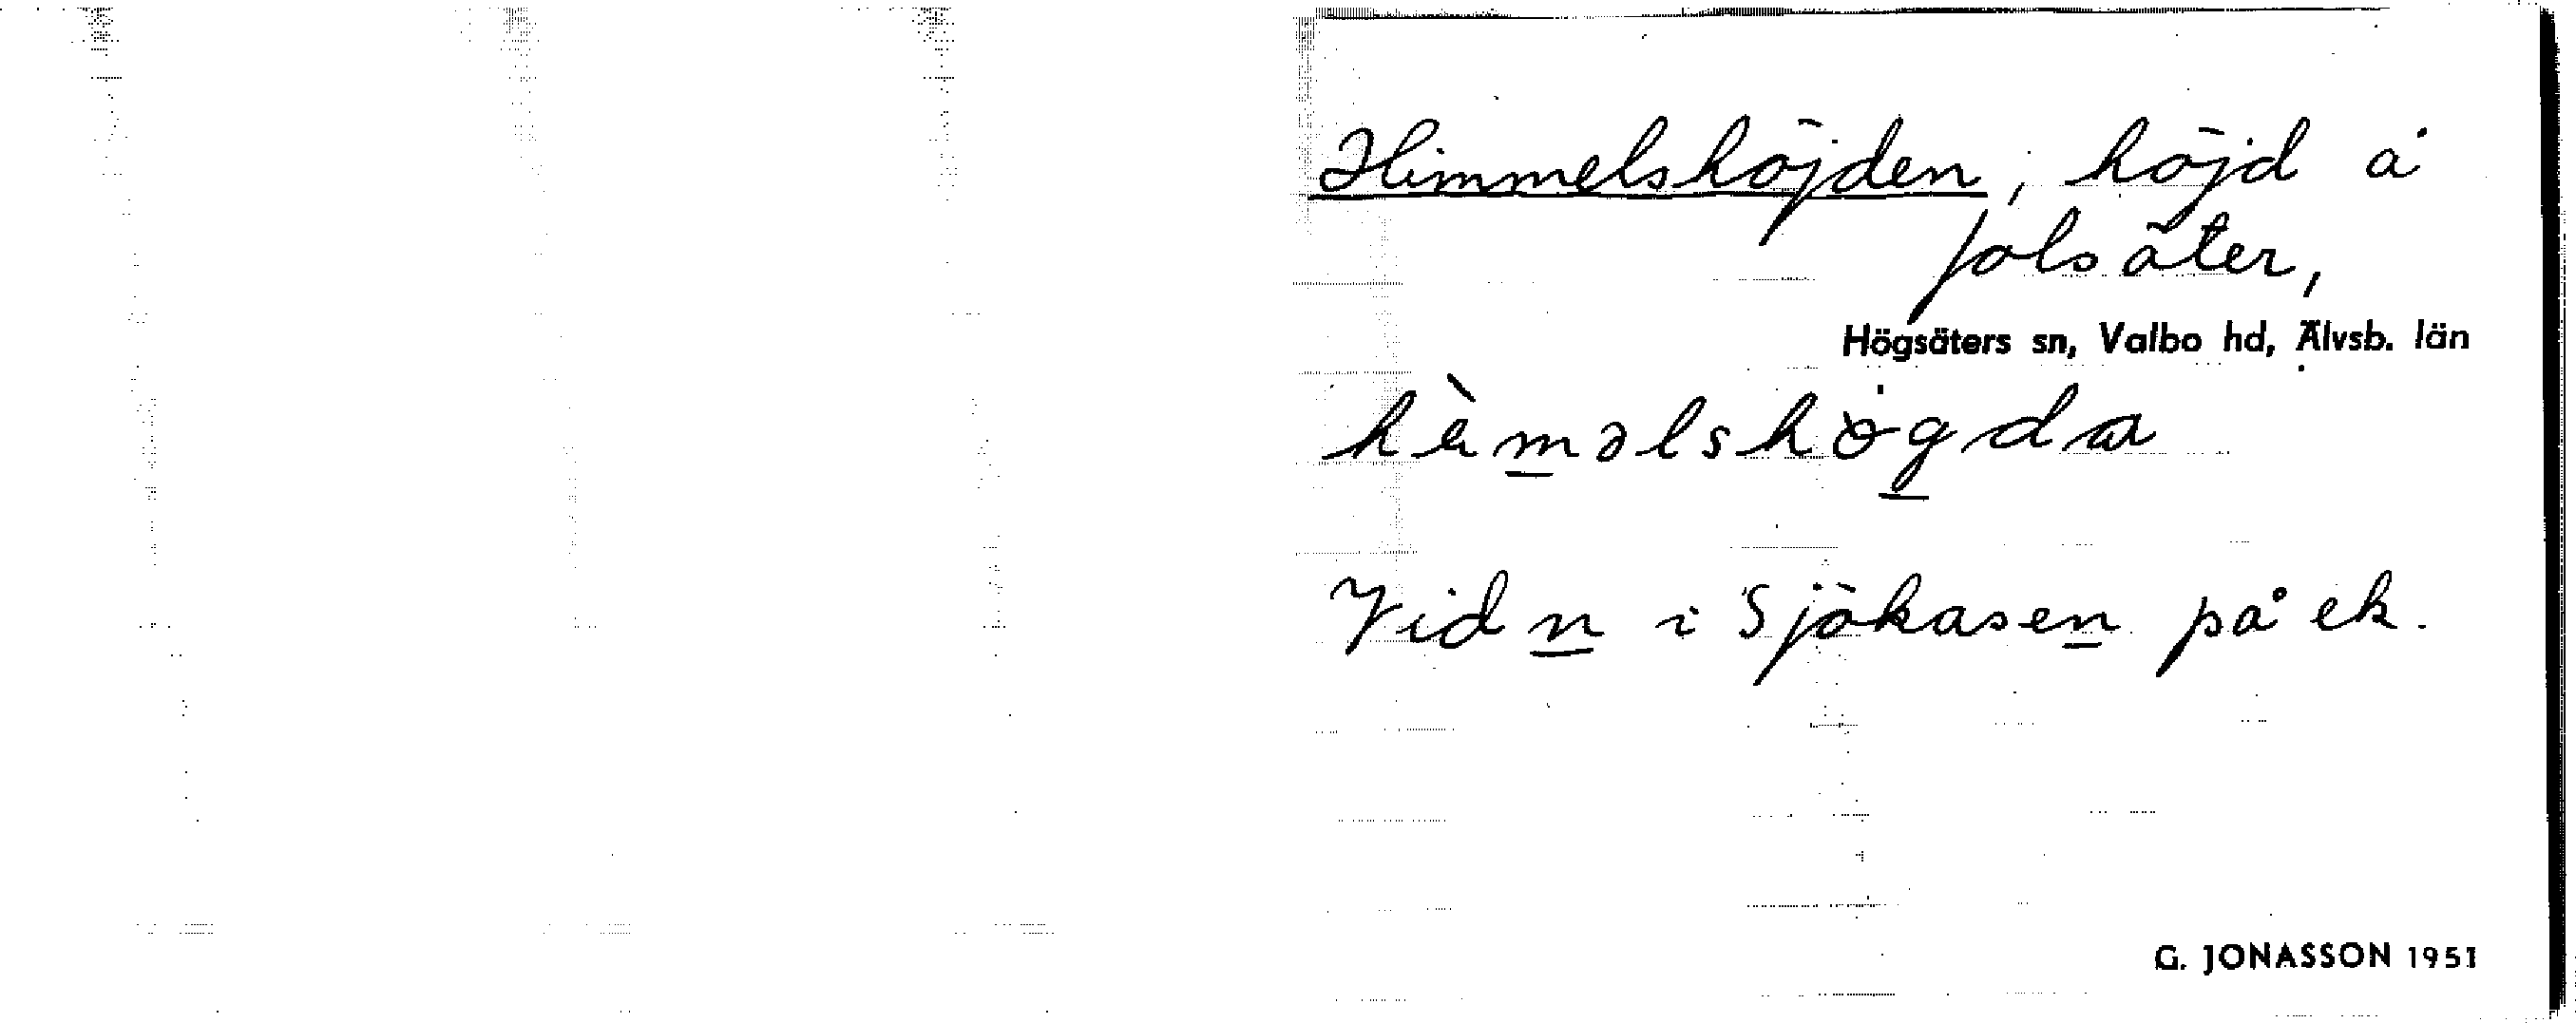 Himmelshöjden, höjd å
Jolsäter,
Högsäters sn, Valbo hd, Älvsb. län
hèməlshögda
Vid n i Sjökasen på ek.
G. JONASSON 1951